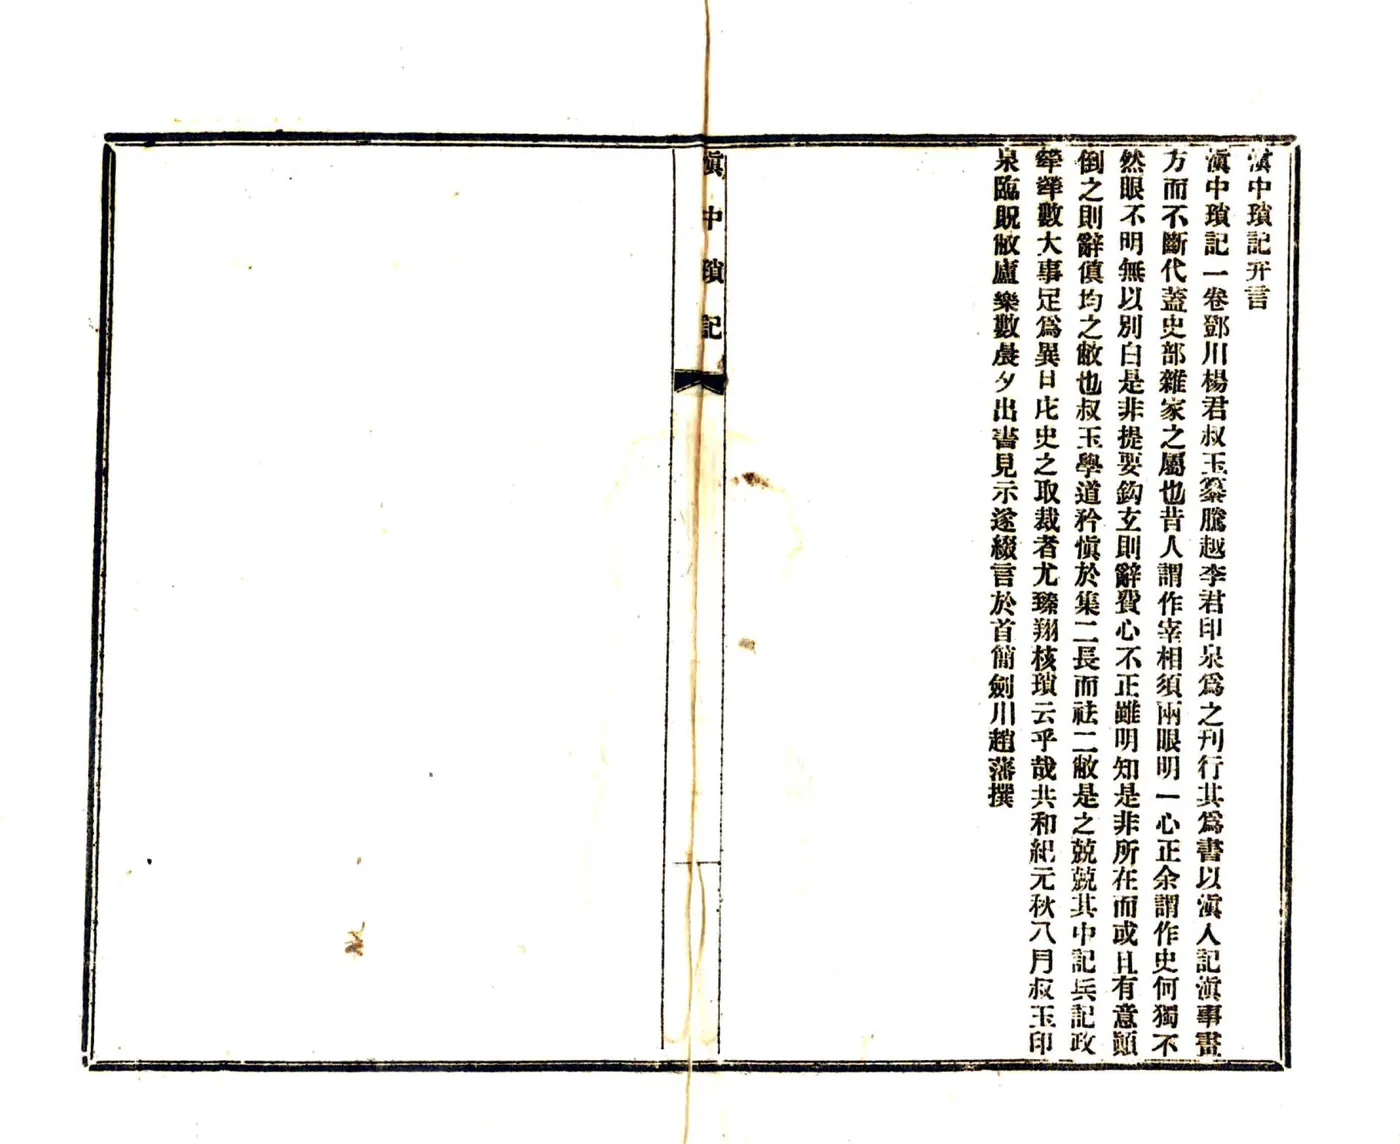 滇中瑣記弁言
滇中瑣記一卷鄧川楊君叔玉纂騰越李君印泉爲之刋行其爲書以滇人記滇事畫
方而不斷代蓋史部雜家之屬也昔人謂作宰相須兩眼明一心正余謂作史何獨不
然眼不明無以別白是非提要鈎玄則辭費心不正雖明知是非所在而或且有意顚
倒之則辭傎均之敝也叔玉學道矜愼於集二長而祛二敝是之兢兢其中記兵記政
犖犖數大事足爲異日庀史之取裁者尤臻翔核瑣云乎哉共和紀元秋八月叔玉印
泉臨貺敝廬樂數晨夕出書見示遂綴言於首簡劍川趙藩撰
滇中瑣記